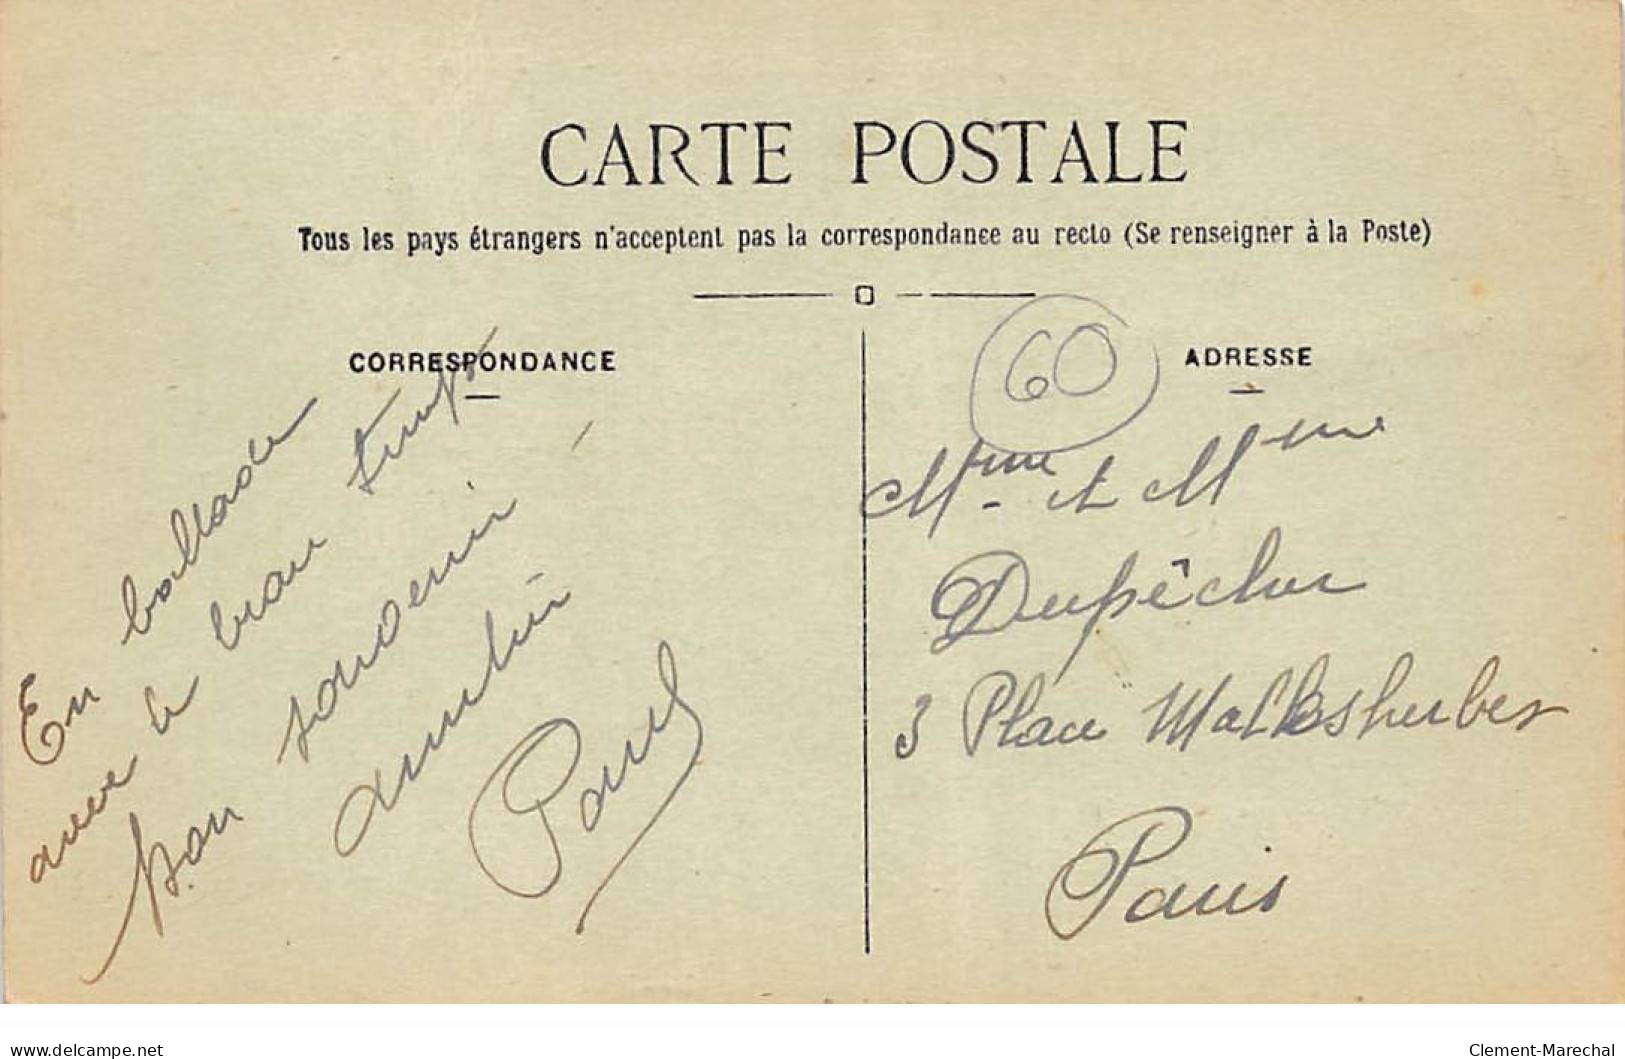 CARTE POSTALE
Tous les pays étrangers n'acceptent pas la correspondance au recto (Se renseigner à la Poste)
CORRESPONDANCE
En ballade
avec le beau temps
bon souvenir
amitié
Paul
60
ADRESSE
Mme et Mme
Dupêcher
3 Place Malesherbes
Paris
delcampe.net
Clement-Marechal